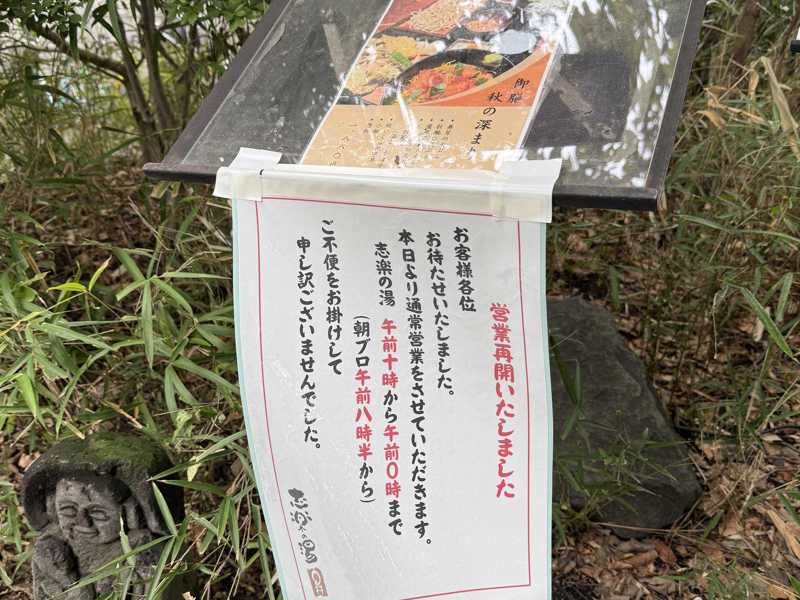 御膳
秋の深まり
営業再開いたしました
お客様各位
お待たせいたしました。
本日より通常営業をさせていただきます。
志楽の湯 午前十時から午前0時まで
(朝ブロ午前八時半から)
ご不便をお掛けして
申し訳ございませんでした。
志楽の湯